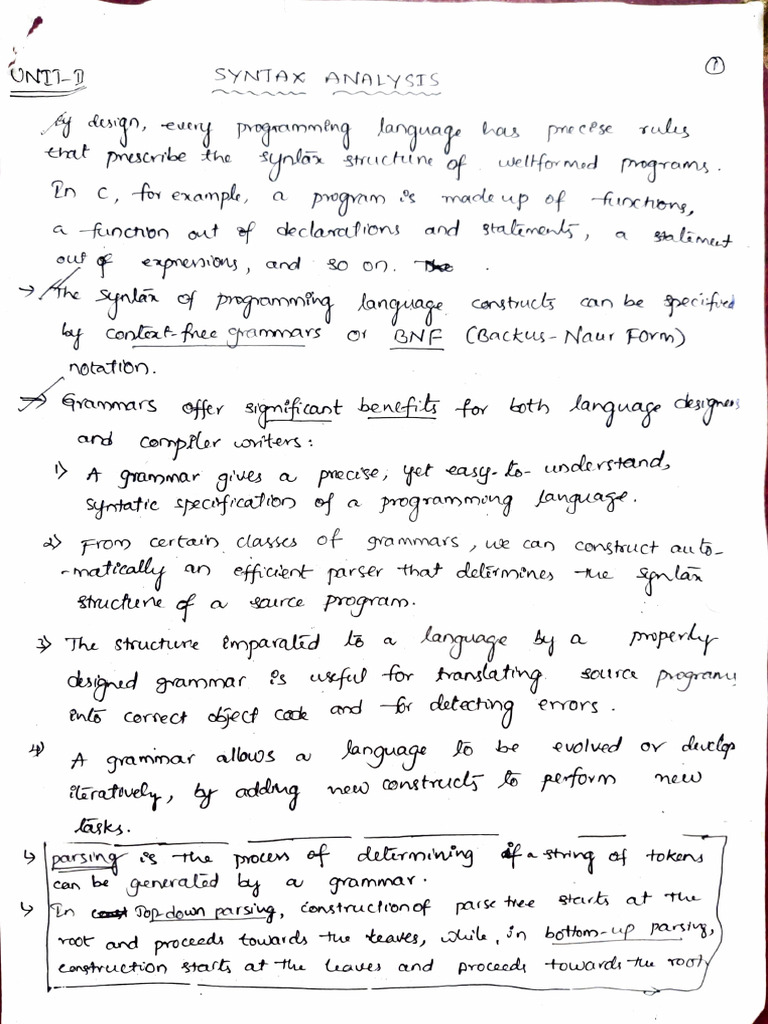 ①
UNIT-II SYNTAX ANALYSIS
By design, every programming language has precise rules
that prescribe the syntax structure of wellformed programs.
In C, for example, a program is made up of functions,
a function out of declarations and statements, a statement
out of expressions, and so on.
→ The syntax of programming language constructs can be specified
by context-free grammars or BNF (Backus-Naur Form)
notation.
→ Grammars offer significant benefits for both language designers
and compiler writers:
1) A grammar gives a precise, yet easy-to-understand,
syntatic specification of a programming language.
2) From certain classes of grammars, we can construct auto-
-matically an efficient parser that determines the syntax
structure of a source program.
3) The structure imparated to a language by a properly
designed grammar is useful for translating source programs
into correct object code and for detecting errors.
4) A grammar allows a language to be evolved or develop
iteratively, by adding new constructs to perform new
tasks.
↳ parsing is the process of determining if a string of tokens
can be generated by a grammar.
↳ In Top-down parsing, construction of parse tree starts at the
root and proceeds towards the leaves, while, in bottom-up parsing,
construction starts at the leaves and proceeds towards the root